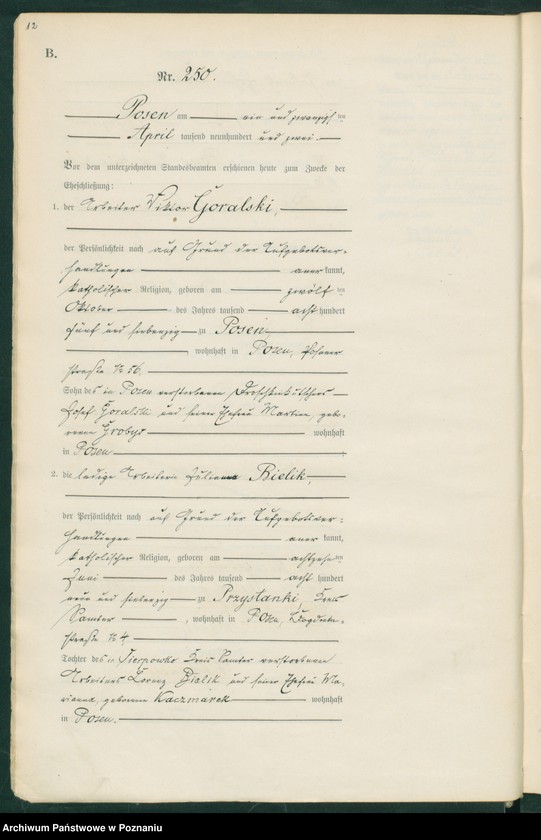 12
B.
Nr. 250.
Posen am ein und zwanzigsten
April tausend neunhundert und zwei.
Vor dem unterzeichneten Standesbeamten erschienen heute zum Zwecke der
Eheschließung:
1. der Arbeiter Viktor Goralski,
der Persönlichkeit nach auf Grund der Aufgebotsver-
handlungen anerkannt,
katholischer Religion, geboren am zwölften
Oktober des Jahres tausend achthundert
fünf und siebenzig zu Posen,
, wohnhaft in Posen,
straße № 56.
Sohn des in Posen verstorbenen Droschkenkutschers
Josef Goralski und seiner Ehefrau gebo-
renen wohnhaft
in Posen
2. die ledige Arbeiterin Bielik,
der Persönlichkeit nach auf Grund der Aufgebotsver-
handlungen anerkannt,
katholischer Religion, geboren am achtzehnten
Juni des Jahres tausend achthundert
neun und siebenzig zu Przystanki, Kreis
Samter, wohnhaft in Posen,
straße № 4
Tochter des in Kreis Samter verstorbenen
Arbeiters Lorenz Bielik und seiner Ehefrau Ma-
rianna, geborenen Kaczmarek wohnhaft
in Posen.
Archiwum Państwowe w Poznaniu